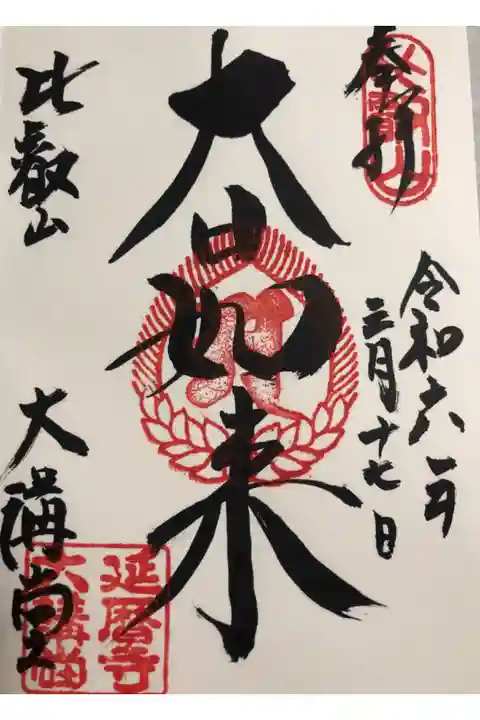 奉拝
比叡山
令和六年
三月十七日
大日如来
比叡山
大講堂
延暦寺